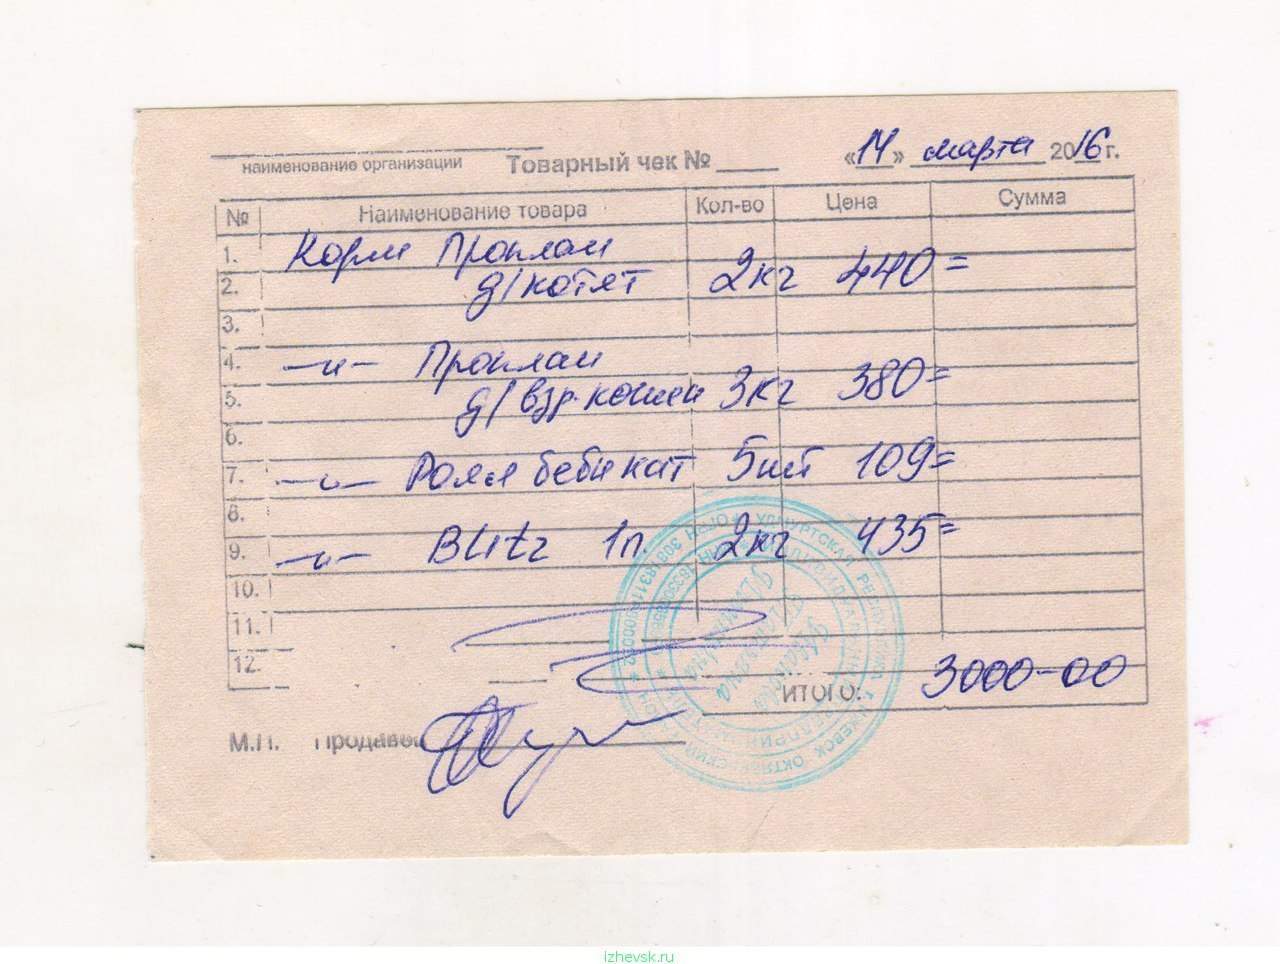 наименование организации Товарный чек № «14» марта 2016 г.
№ Наименование товара Кол-во Цена Сумма
1. Корм Проплан
2. д/котят 2кг 440=
3.
4. —„— Проплан
5. д/взр. кошек 3кг 380=
6.
7. —„— Роял беби кат 5шт 109=
8.
9. —„— Blitz 1п. 2кг 435=
10.
11.
12.
ИТОГО: 3000-00
М.П. Продавец
УДМУРТСКАЯ РЕСПУБЛИКА Г. ИЖЕВСК ОКТЯБРЬСКИЙ
izhevsk.ru